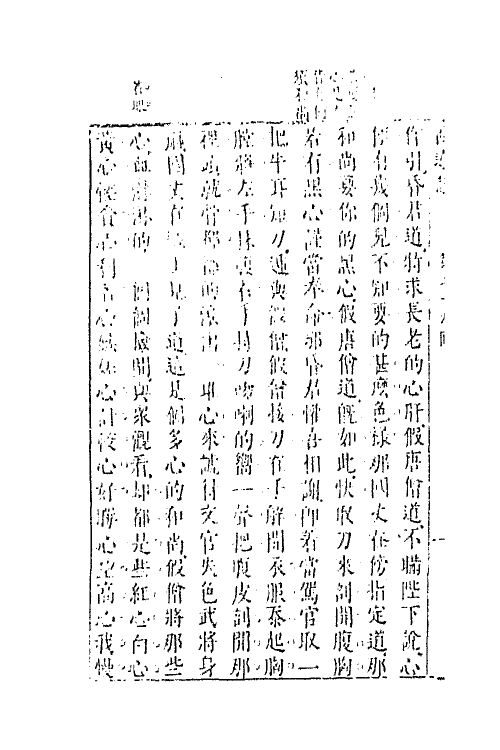 作引昏君道特求長老的心肝假唐僧道不瞞陛下說心
便有幾個兒不知要的甚麼色樣那國丈在傍指定道那
和尚要你的黑心假唐僧道既如此快取刀來剖開腹胸
若有黑心謹當奉命那昏君懽喜相謝即着當駕官取一
把牛耳短刀遞與假僧假僧接刀在手解開衣服忝起胸
膛將左手抹腹右手持刀唿喇的響一聲把腹皮剖開那
裡頭就骨都都的滾出一堆心來諕得文官失色武將身
麻國丈在殿上見了道這是個多心的和尚假僧將那些
心血淋淋的一個個撿開與眾觀看却都是些紅心白心
黃心慳貪心利名心嫉妬心計較心好勝心望高心我慢